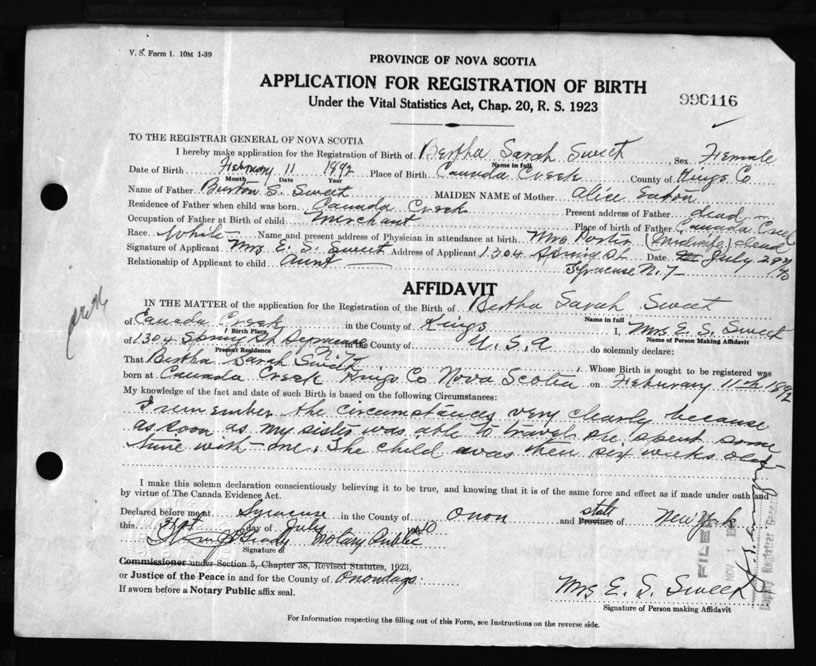 V. S. Form 1. 10M 1-39
PROVINCE OF NOVA SCOTIA
APPLICATION FOR REGISTRATION OF BIRTH
Under the Vital Statistics Act, Chap. 20, R. S. 1923
990116
TO THE REGISTRAR GENERAL OF NOVA SCOTIA
I hereby make application for the Registration of Birth of Bertha Sarah Sweet Sex Female
Name in full
Date of Birth February 11 1892 Place of Birth Canada Creek County of Kings Co
Month Date Year
Name of Father Burton S. Sweet MAIDEN NAME of Mother Alice Eaton
Residence of Father when child was born Canada Creek Present address of Father dead
Occupation of Father at Birth of child Merchant Place of birth of Father Canada Creek
Race White Name and present address of Physician in attendance at birth Mrs (Midwife) dead
Signature of Applicant Mrs E. S. Sweet Address of Applicant 1304 Spring St. Date July 29
Syracuse N. Y.
Relationship of Applicant to child aunt
AFFIDAVIT
IN THE MATTER of the application for the Registration of the Birth of Bertha Sarah Sweet
Name in full
of Canada Creek in the County of Kings I, Mrs E. S. Sweet
Birth Place Name of Person Making Affidavit
of 1304 Spring St Syracuse N. Y. in the County of U. S. A do solemnly declare:
Present Residence
That Bertha Sarah Sweet Whose Birth is sought to be registered was
born at Canada Creek Kings Co Nova Scotia on February 11th 1892
My knowledge of the fact and date of such Birth is based on the following Circumstances:
I remember the circumstances very clearly because
as soon as my sister was able to travel she spent some
time with me. The child was then six weeks old
I make this solemn declaration conscientiously believing it to be true, and knowing that it is of the same force and effect as if made under oath and
by virtue of The Canada Evidence Act.
Declared before me at Syracuse in the County of Onon and state Province of New York
this day of July
Notary Public
Signature of
Commissioner under Section 5, Chapter 38, Revised Statutes, 1923,
or Justice of the Peace in and for the County of Onondaga
If sworn before a Notary Public affix seal.
Mrs E. S. Sweet
Signature of Person making Affidavit
FILED
NOV
Deputy Registrar General
For Information respecting the filling out of this Form, see Instructions on the reverse side.